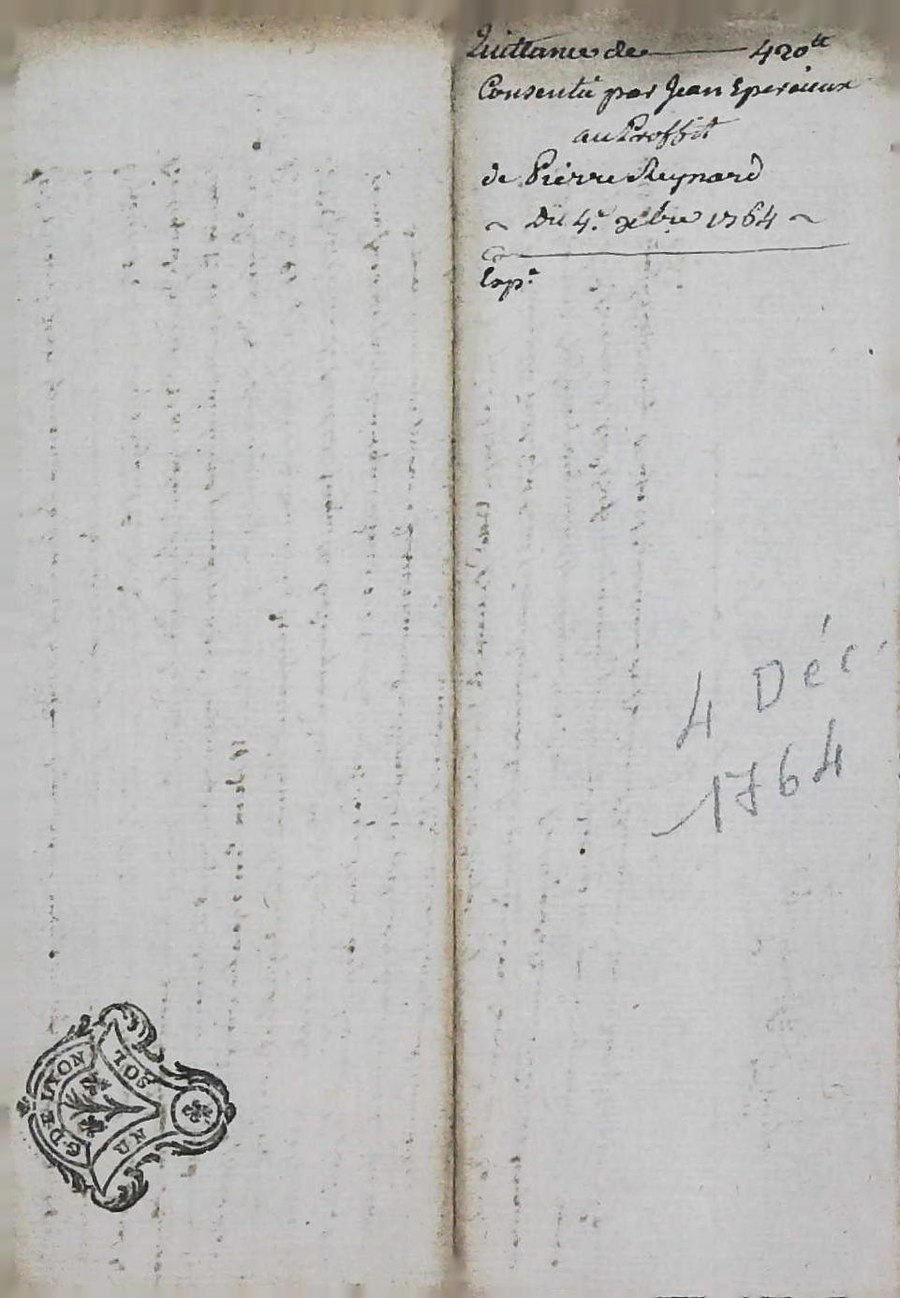 Quittance de 420tt
Consentie par Jean Eperieux
au Proffit
de Pierre Reynard
~ Du 4e. xbre 1764 ~
Exp.
4 Déc.
1764
G. DE LYON
UN SOL